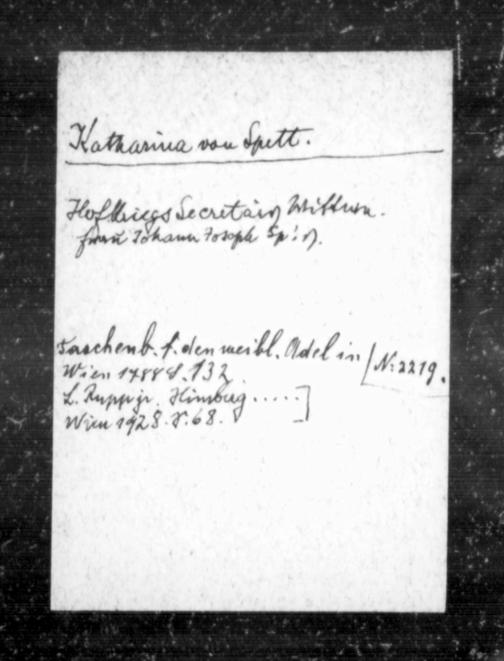 Katharina von Spett.
HofkriegsSecretärs Wittwe.
Johann Joseph Sp's.
Taschenb. f. den weibl. Adel in
Wien 1788 S. 132
N: 2219.
L. Rupp jr. Himberg .....]
Wien 1928. S. 68.